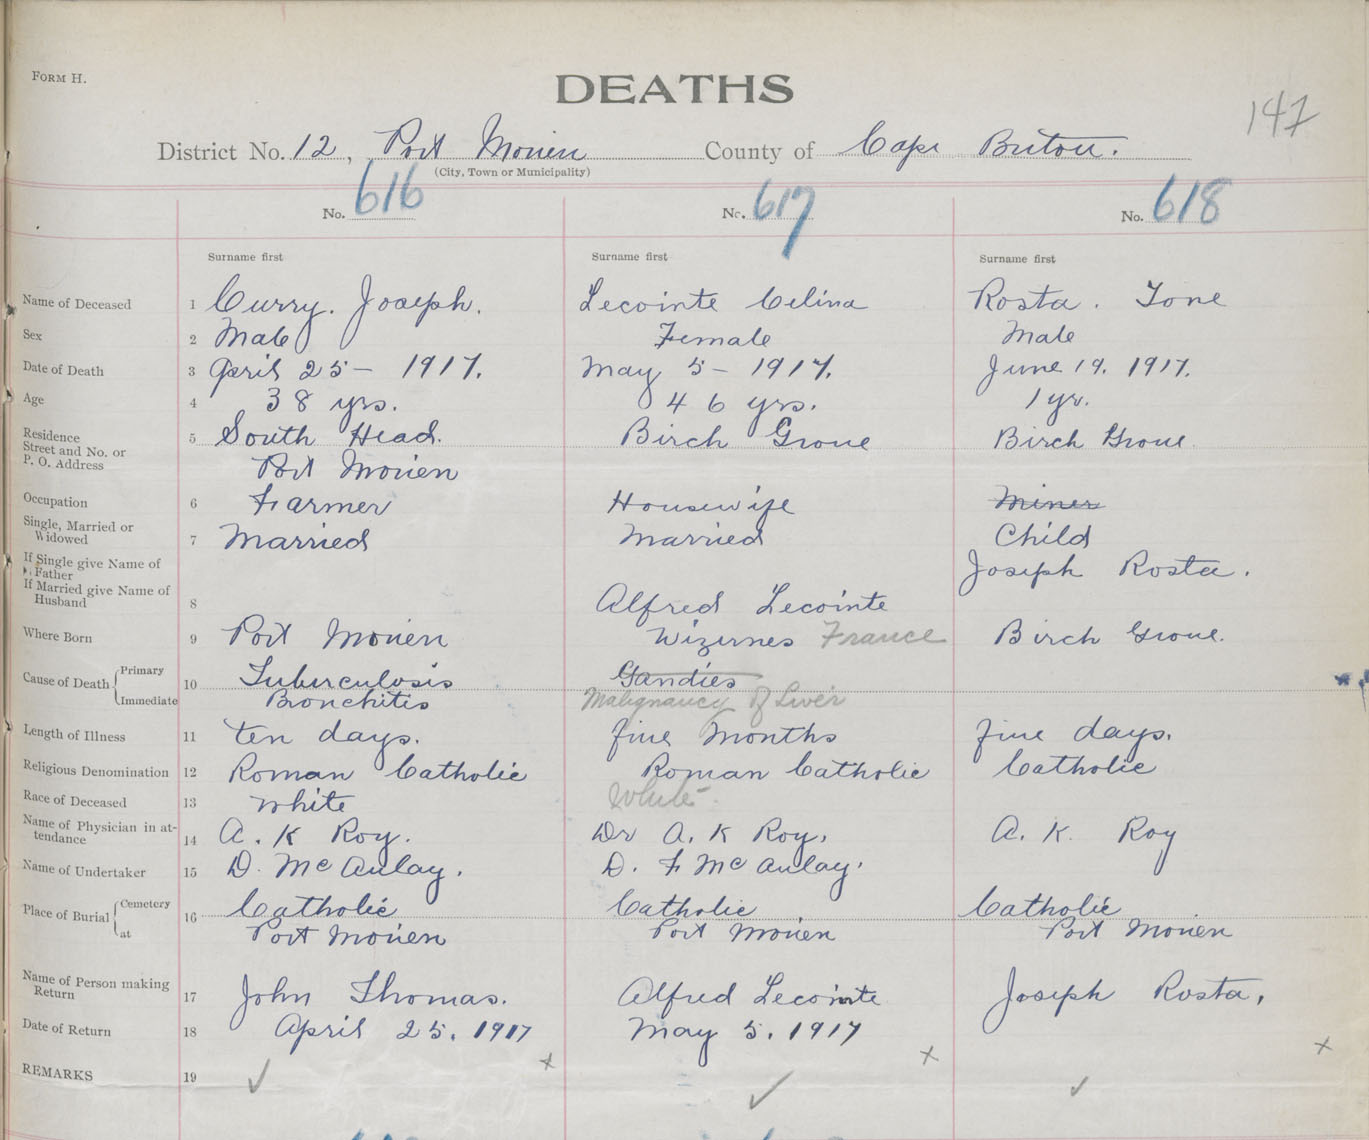 FORM H.
DEATHS
147
District No. 12, Port Morien County of Cape Breton.
(City, Town or Municipality)
No. 616 No. 617 No. 618
Surname first Surname first Surname first
Name of Deceased 1 Curry. Joseph. Lecointe Celina Rosta. Tone
Sex 2 Male Female Male
Date of Death 3 April 25- 1917. May 5- 1917. June 19. 1917.
Age 4 38 yrs. 46 yrs. 1 yr.
Residence Street and No. or P. O. Address 5 South Head. Birch Grove Birch Grove
Port Morien
Occupation 6 Farmer Housewife Miner
Single, Married or Widowed 7 Married Married Child
If Single give Name of Father Joseph Rosta.
If Married give Name of Husband 8 Alfred Lecointe
Where Born 9 Port Morien Wizernes France Birch Grove.
Cause of Death Primary 10 Tuberculosis Gandies
Immediate Bronchitis Malignancy of Liver
Length of Illness 11 ten days. five months five days.
Religious Denomination 12 Roman Catholic Roman Catholic Catholic
Race of Deceased 13 white White
Name of Physician in attendance 14 A. K Roy. Dr A. K Roy. A. K. Roy
Name of Undertaker 15 D. McAulay. D. F McAulay.
Place of Burial Cemetery 16 Catholic Catholic Catholic
at Port Morien Port Morien Port Morien
Name of Person making Return 17 John Thomas. Alfred Lecointe Joseph Rosta,
Date of Return 18 April 25. 1917 May 5. 1917
REMARKS 19